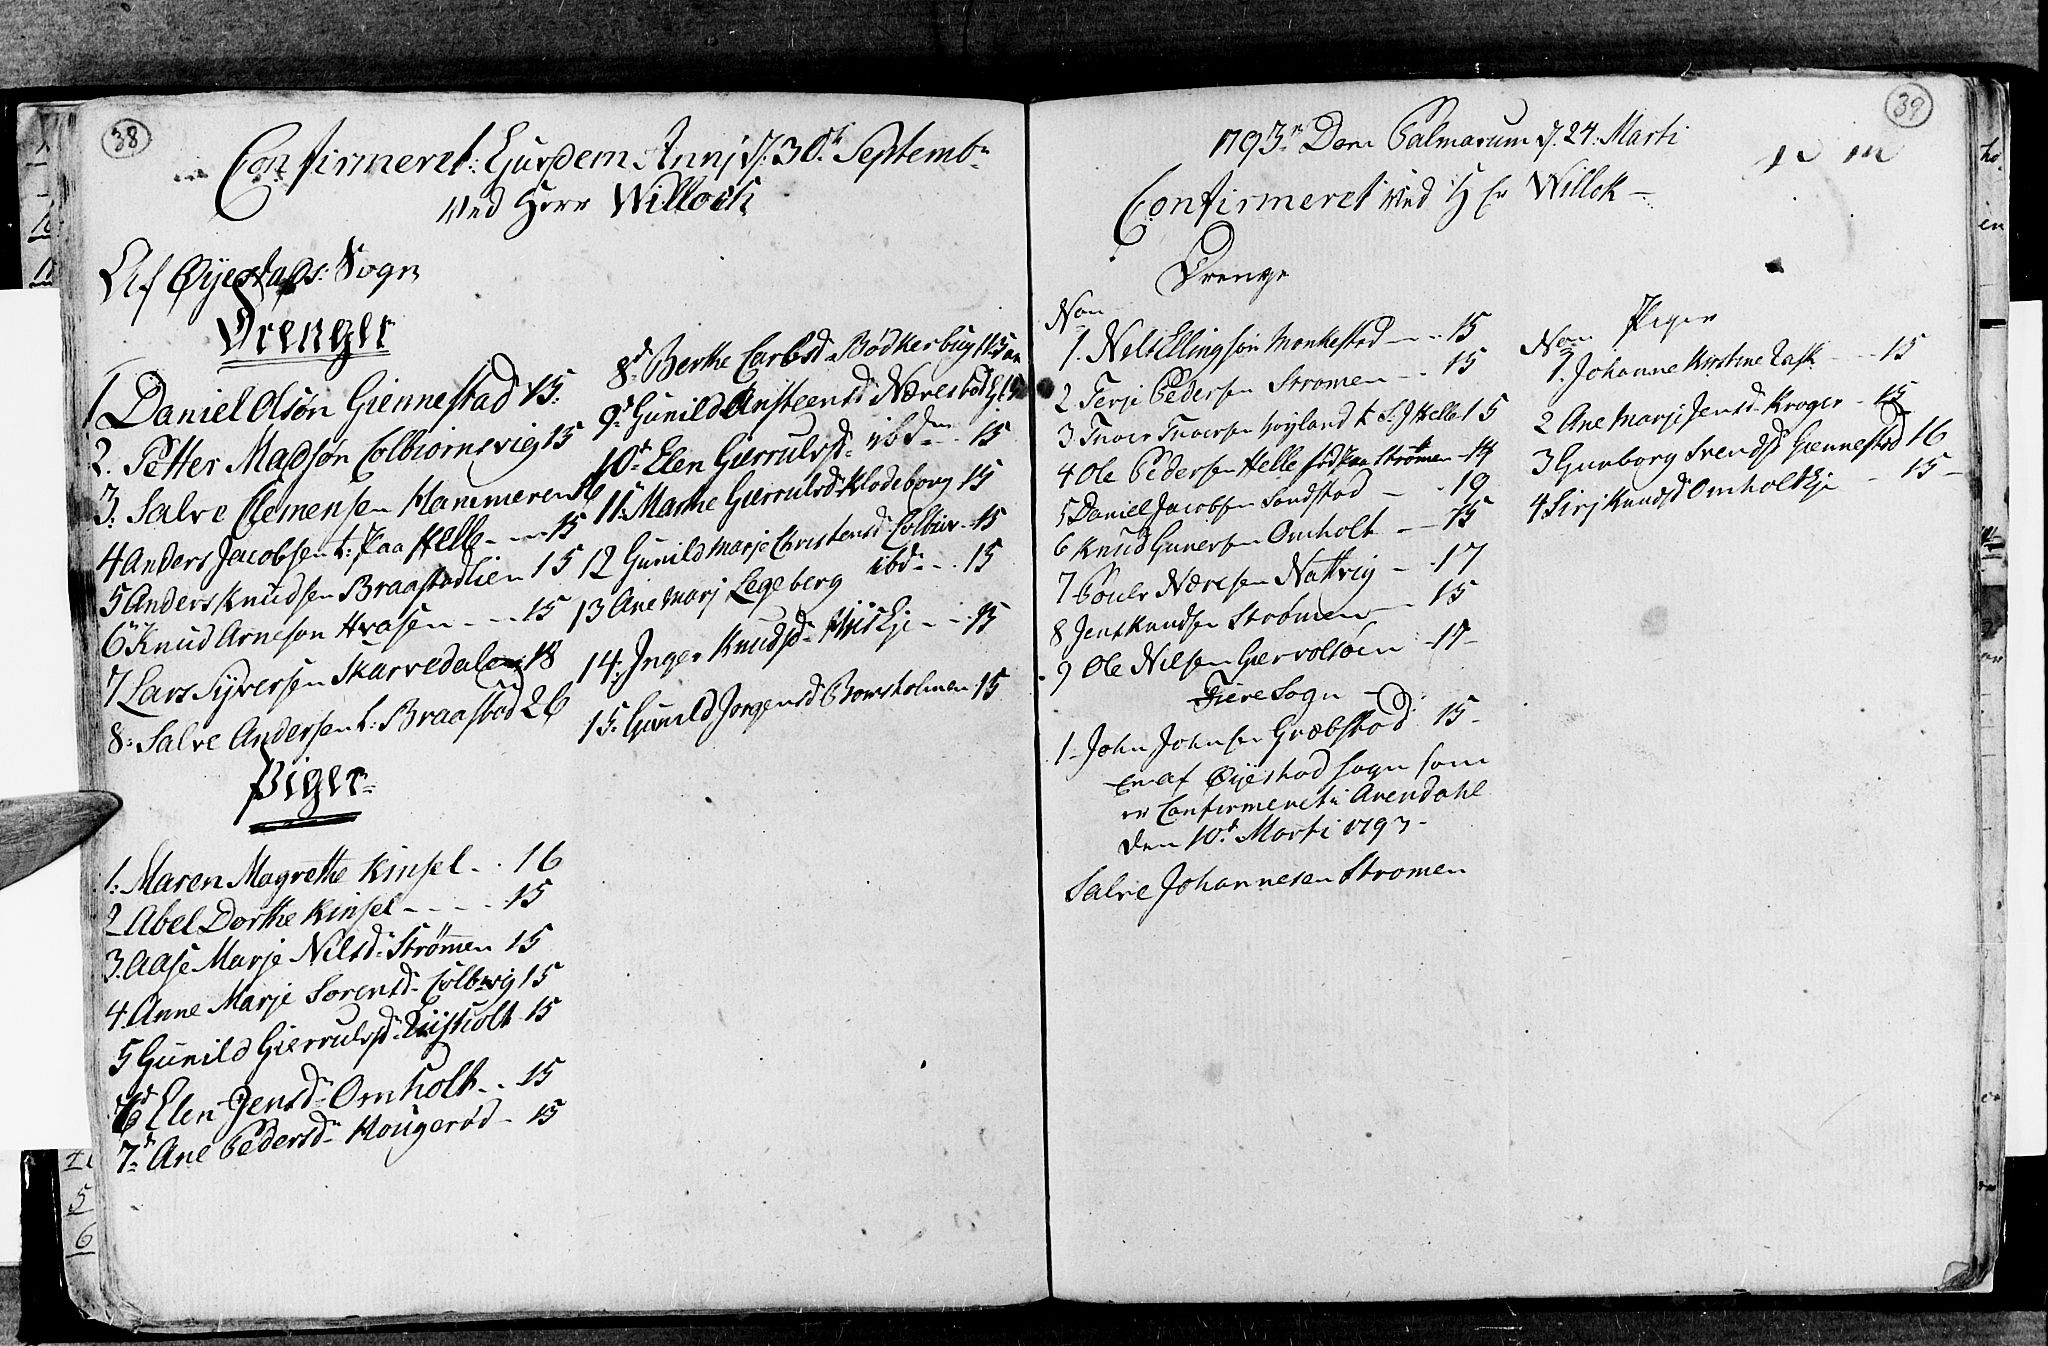 38
Confirmeret: Ejusdem Annj d: 30te Septembr
ved Herr Willock
Af Øyestads: Sogn
Drenger
1 Daniel Olsøn Giennestad 15:
2. Petter Madsøn Colbiornsvig 15
3. Salve Clemensen Hammeren 16
4 Anders Jacobsen t: paa Helle - - - 15
5 Anders Knudsen Braastadlien 15
6 Knud Arneson Hvasen - - - 15
7 Lars Syversen Skarvedalen 18
8: Salve Andersen t: Braastad 26
Piger
1: Maren Magrethe Kinsel - . 16
2 Abel Dorthe Kinsel - - - - 15
3. Aase Marje Nilsd: Strømen 15
4. Anne Marje Sorensd- Colbvig 15
5 Gunild Gierrulsd 15
6 Elen Jensd- Omholt - - 15
7 Ane Pedersd- Hougerød - 15
8 Berthe Carlsd Bødkerbug
9 Gunild Ansteensd Nærestad
10 Elen Gierrulsd- ibd - 15
11: Marthe Gierrulsd Klodeborg 15
12 Gunild Marje Christensd Colbiør - 15
13 Ane Marj Legeberg ibd - . 15
14: Inger Knudsd- - - 15
15: Gunild Jorgensd Bomsholmen 15
39
1793 Dom Palmarum d. 24. Marti
Confirmeret ved H Er Willok -
Drenge
Non
1. Nils Ellingsøn Monkestad - - 15
2 Terje Pedersen Stromen - . 15
3 Tvver Tvversen t Helle 15
4 Ole Pedersen Helle paa Strømen - 19
5 Daniel Jacobsen Sandstad - . 19
6 Knud Gunersen Omholt - - 15
7 Næresen Nattvig - . 17
8 Jens Knudsen Strømen - 15
9 Ole Nilsen Giervoldsøen - 17 -
Fiere Sogn
1- John Johnsen Græbstad 15-
En af Øyestad sogn som
er Confirmeret i Arendahl
den 10d Marti 1793-
Salve Johannesen Stromen
Non Piger
1. Johanne Kirstine Lask - - 15
2 Ane Marje Jensd- Kroger - 15
3 Gunborg Svendsd Giennestad 16
4 Sirj Knudsd Omholtkje - 15 -